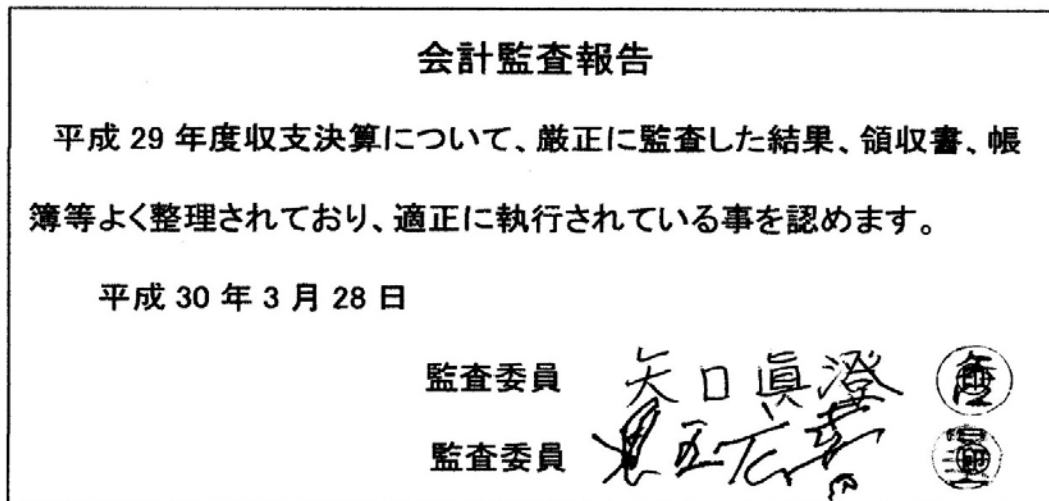 会計監査報告
平成 29 年度収支決算について、厳正に監査した結果、領収書、帳
簿等よく整理されており、適正に執行されている事を認めます。
平成 30 年 3 月 28 日
監査委員 矢口眞澄
監査委員